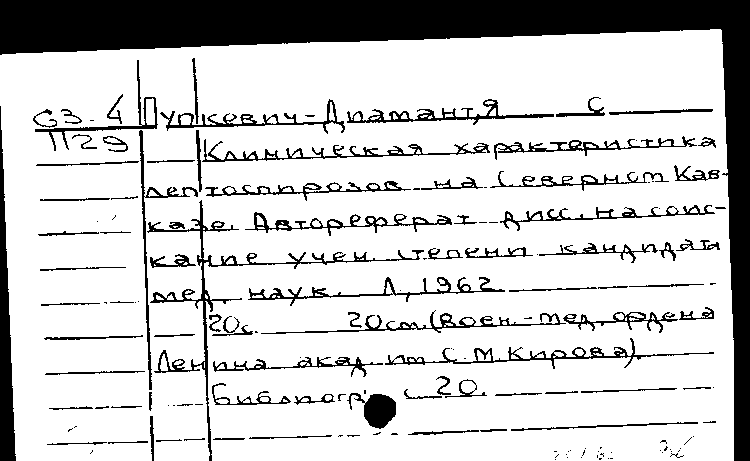 63-4 Пупкевич-Диамант, Я С
1129 Климическая характеристика
лептоспирозов на Северном Кав-
казе. Автореферат дисс. на соис-
кание учен. степени кандидата
мед. наук. Л, 1962
20с. 20см. (Воен.-мед. ордена
Ленина акад. им С.М.Кирова).
Библиогр: с 20.